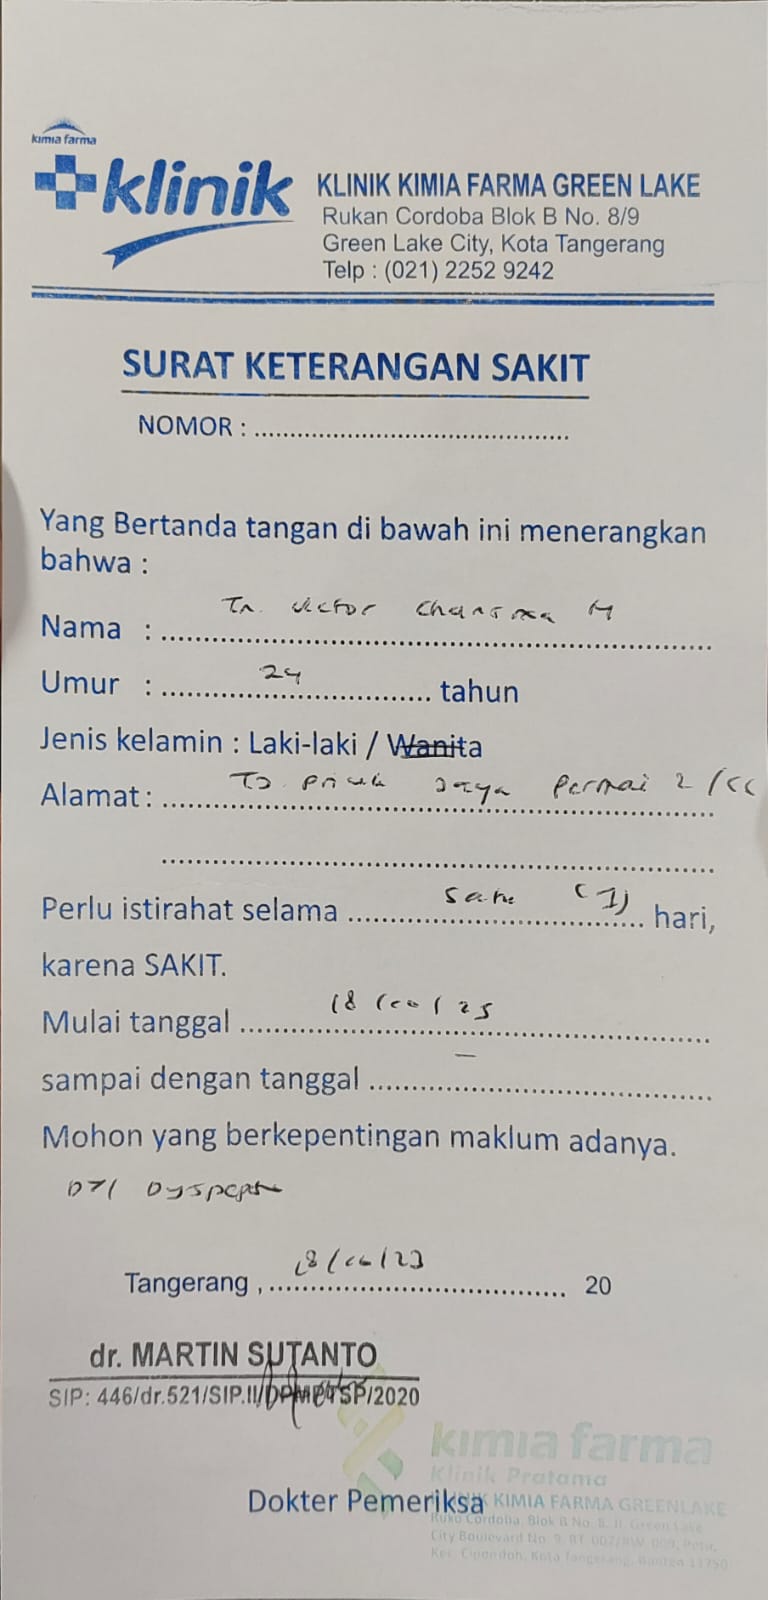 kimia farma
klinik
KLINIK KIMIA FARMA GREEN LAKE
Rukan Cordoba Blok B No. 8/9
Green Lake City, Kota Tangerang
Telp : (021) 2252 9242
SURAT KETERANGAN SAKIT
NOMOR : ..........................................
Yang Bertanda tangan di bawah ini menerangkan
bahwa :
Nama : Tn. Victor M
Umur : 24 tahun
Jenis kelamin : Laki-laki / Wanita
Alamat : Permai 2/
Perlu istirahat selama satu (1) hari,
karena SAKIT.
Mulai tanggal
sampai dengan tanggal –
Mohon yang berkepentingan maklum adanya.
Tangerang , 20
dr. MARTIN SUTANTO
SIP: 446/dr.521/SIP.II/DPMPTSP/2020
kimia farma
Klinik Pratama
Dokter Pemeriksa
KLINIK KIMIA FARMA GREENLAKE
Ruko Cordoba, Blok B No. Green Lake
City Boulevard No. 9, RT. 007/RW. 009, Petir,
Kec. Cipondoh, Kota Tangerang, Banten 11750